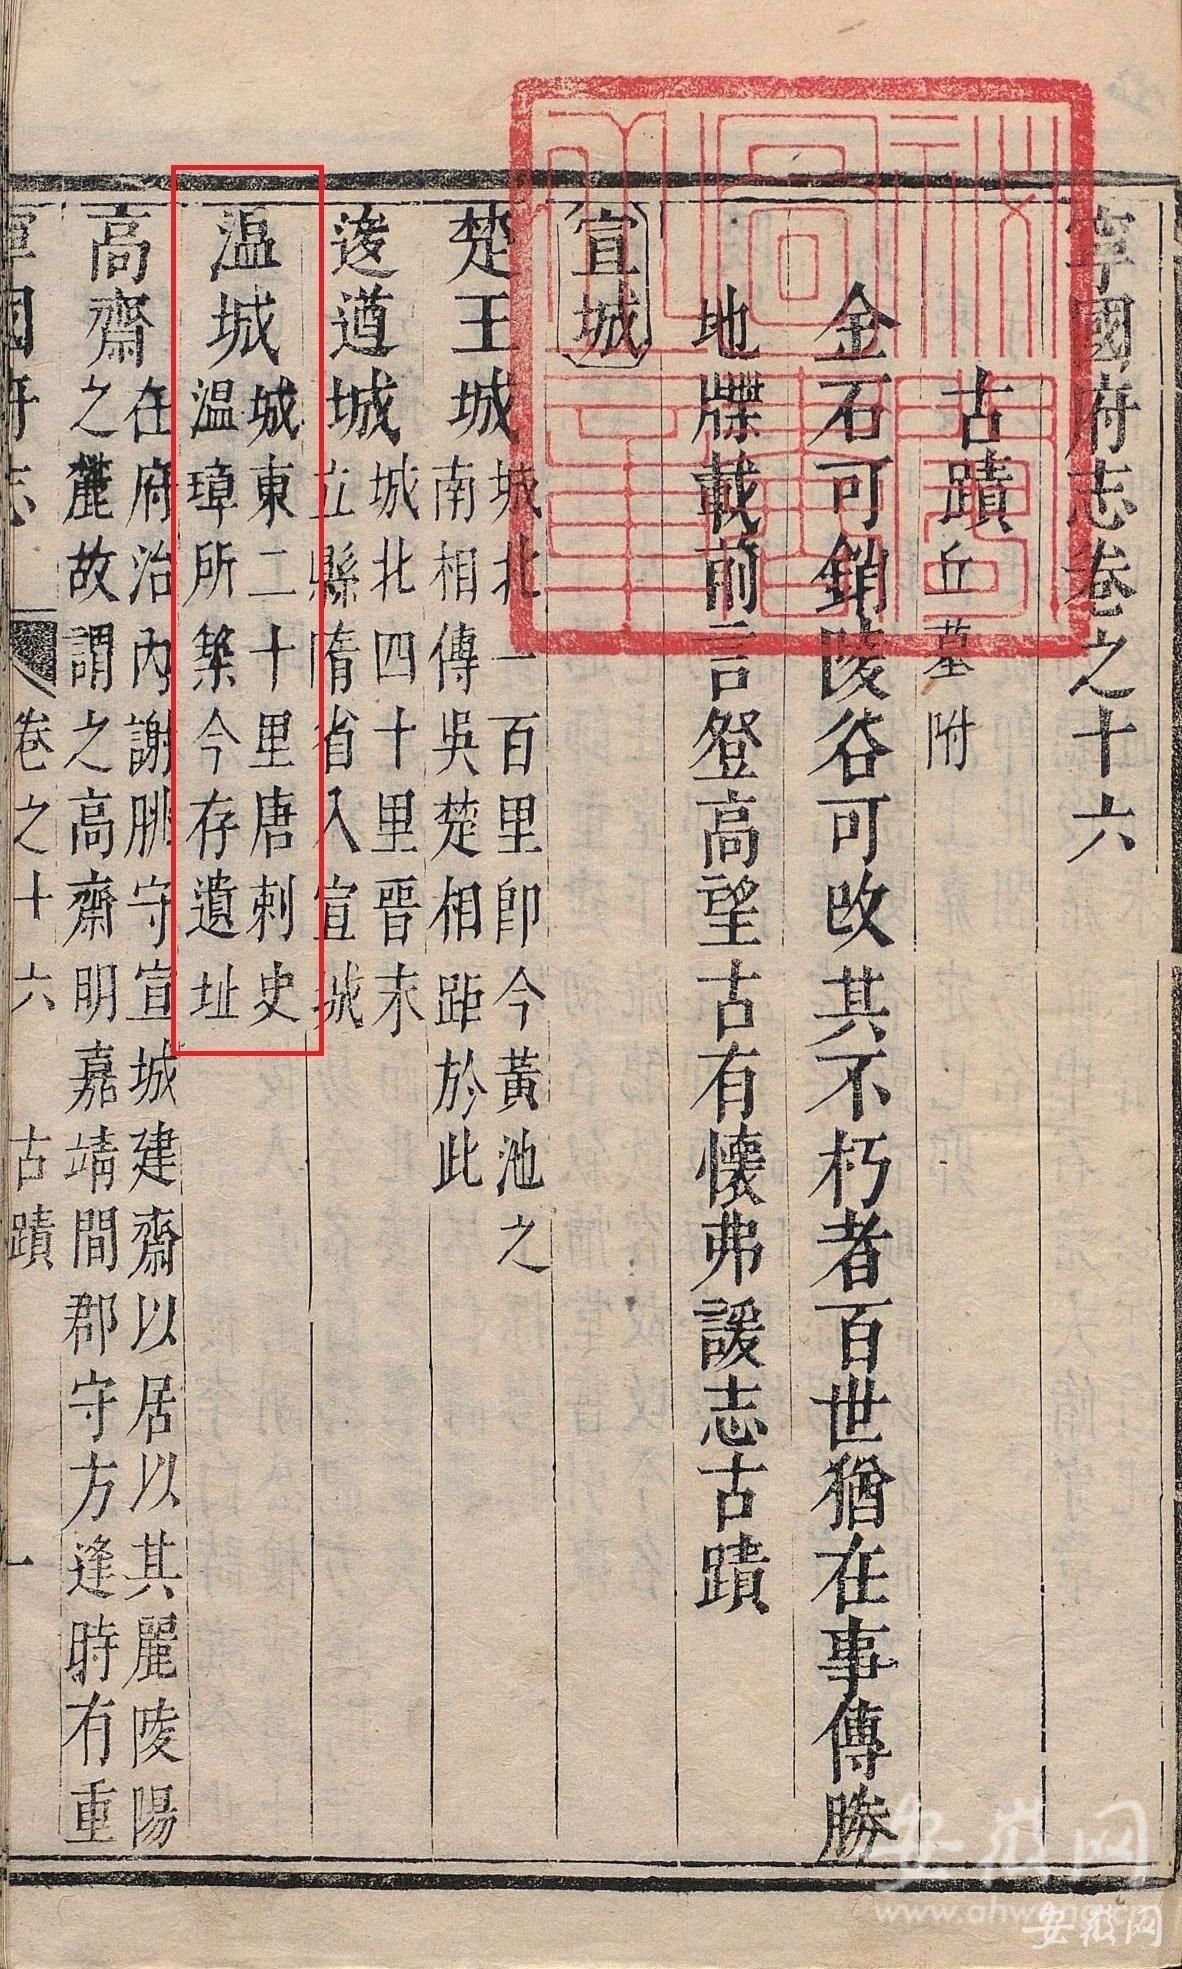 寧國府志卷之十六
古蹟丘墓附
金石可銷陵谷可改其不朽者百世猶在事傳勝
地牒載前言登高望古有懷弗諼志古蹟
宣城
楚王城城北一百里卽今黃池之
南相傳吳楚相距於此
逡遒城城北四十里晉末
立縣隋省入宣城
温城城東二十里唐刺史
温璋所築今存遺址
高齋在府治內謝朓守宣城建齋以居以其麗陵陽
之麓故謂之高齋明嘉靖間郡守方逢時有重
寧國府志 卷之十六 古蹟 一
安徽网
www.ahwang.cn
安徽网